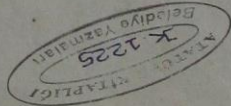 ATATÜRK KİTAPLIĞI
K 1225
Belediye Yazmaları